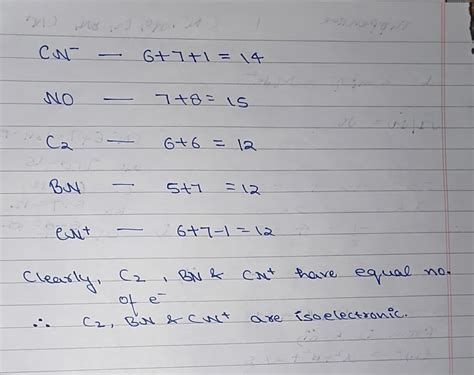 CN⁻ — 6+7+1 = 14
NO — 7+8 = 15
C₂ — 6+6 = 12
BN — 5+7 = 12
CN⁺ — 6+7-1 = 12
Clearly, C₂, BN & CN⁺ have equal no.
of e⁻
∴ C₂, BN & CN⁺ are isoelectronic.